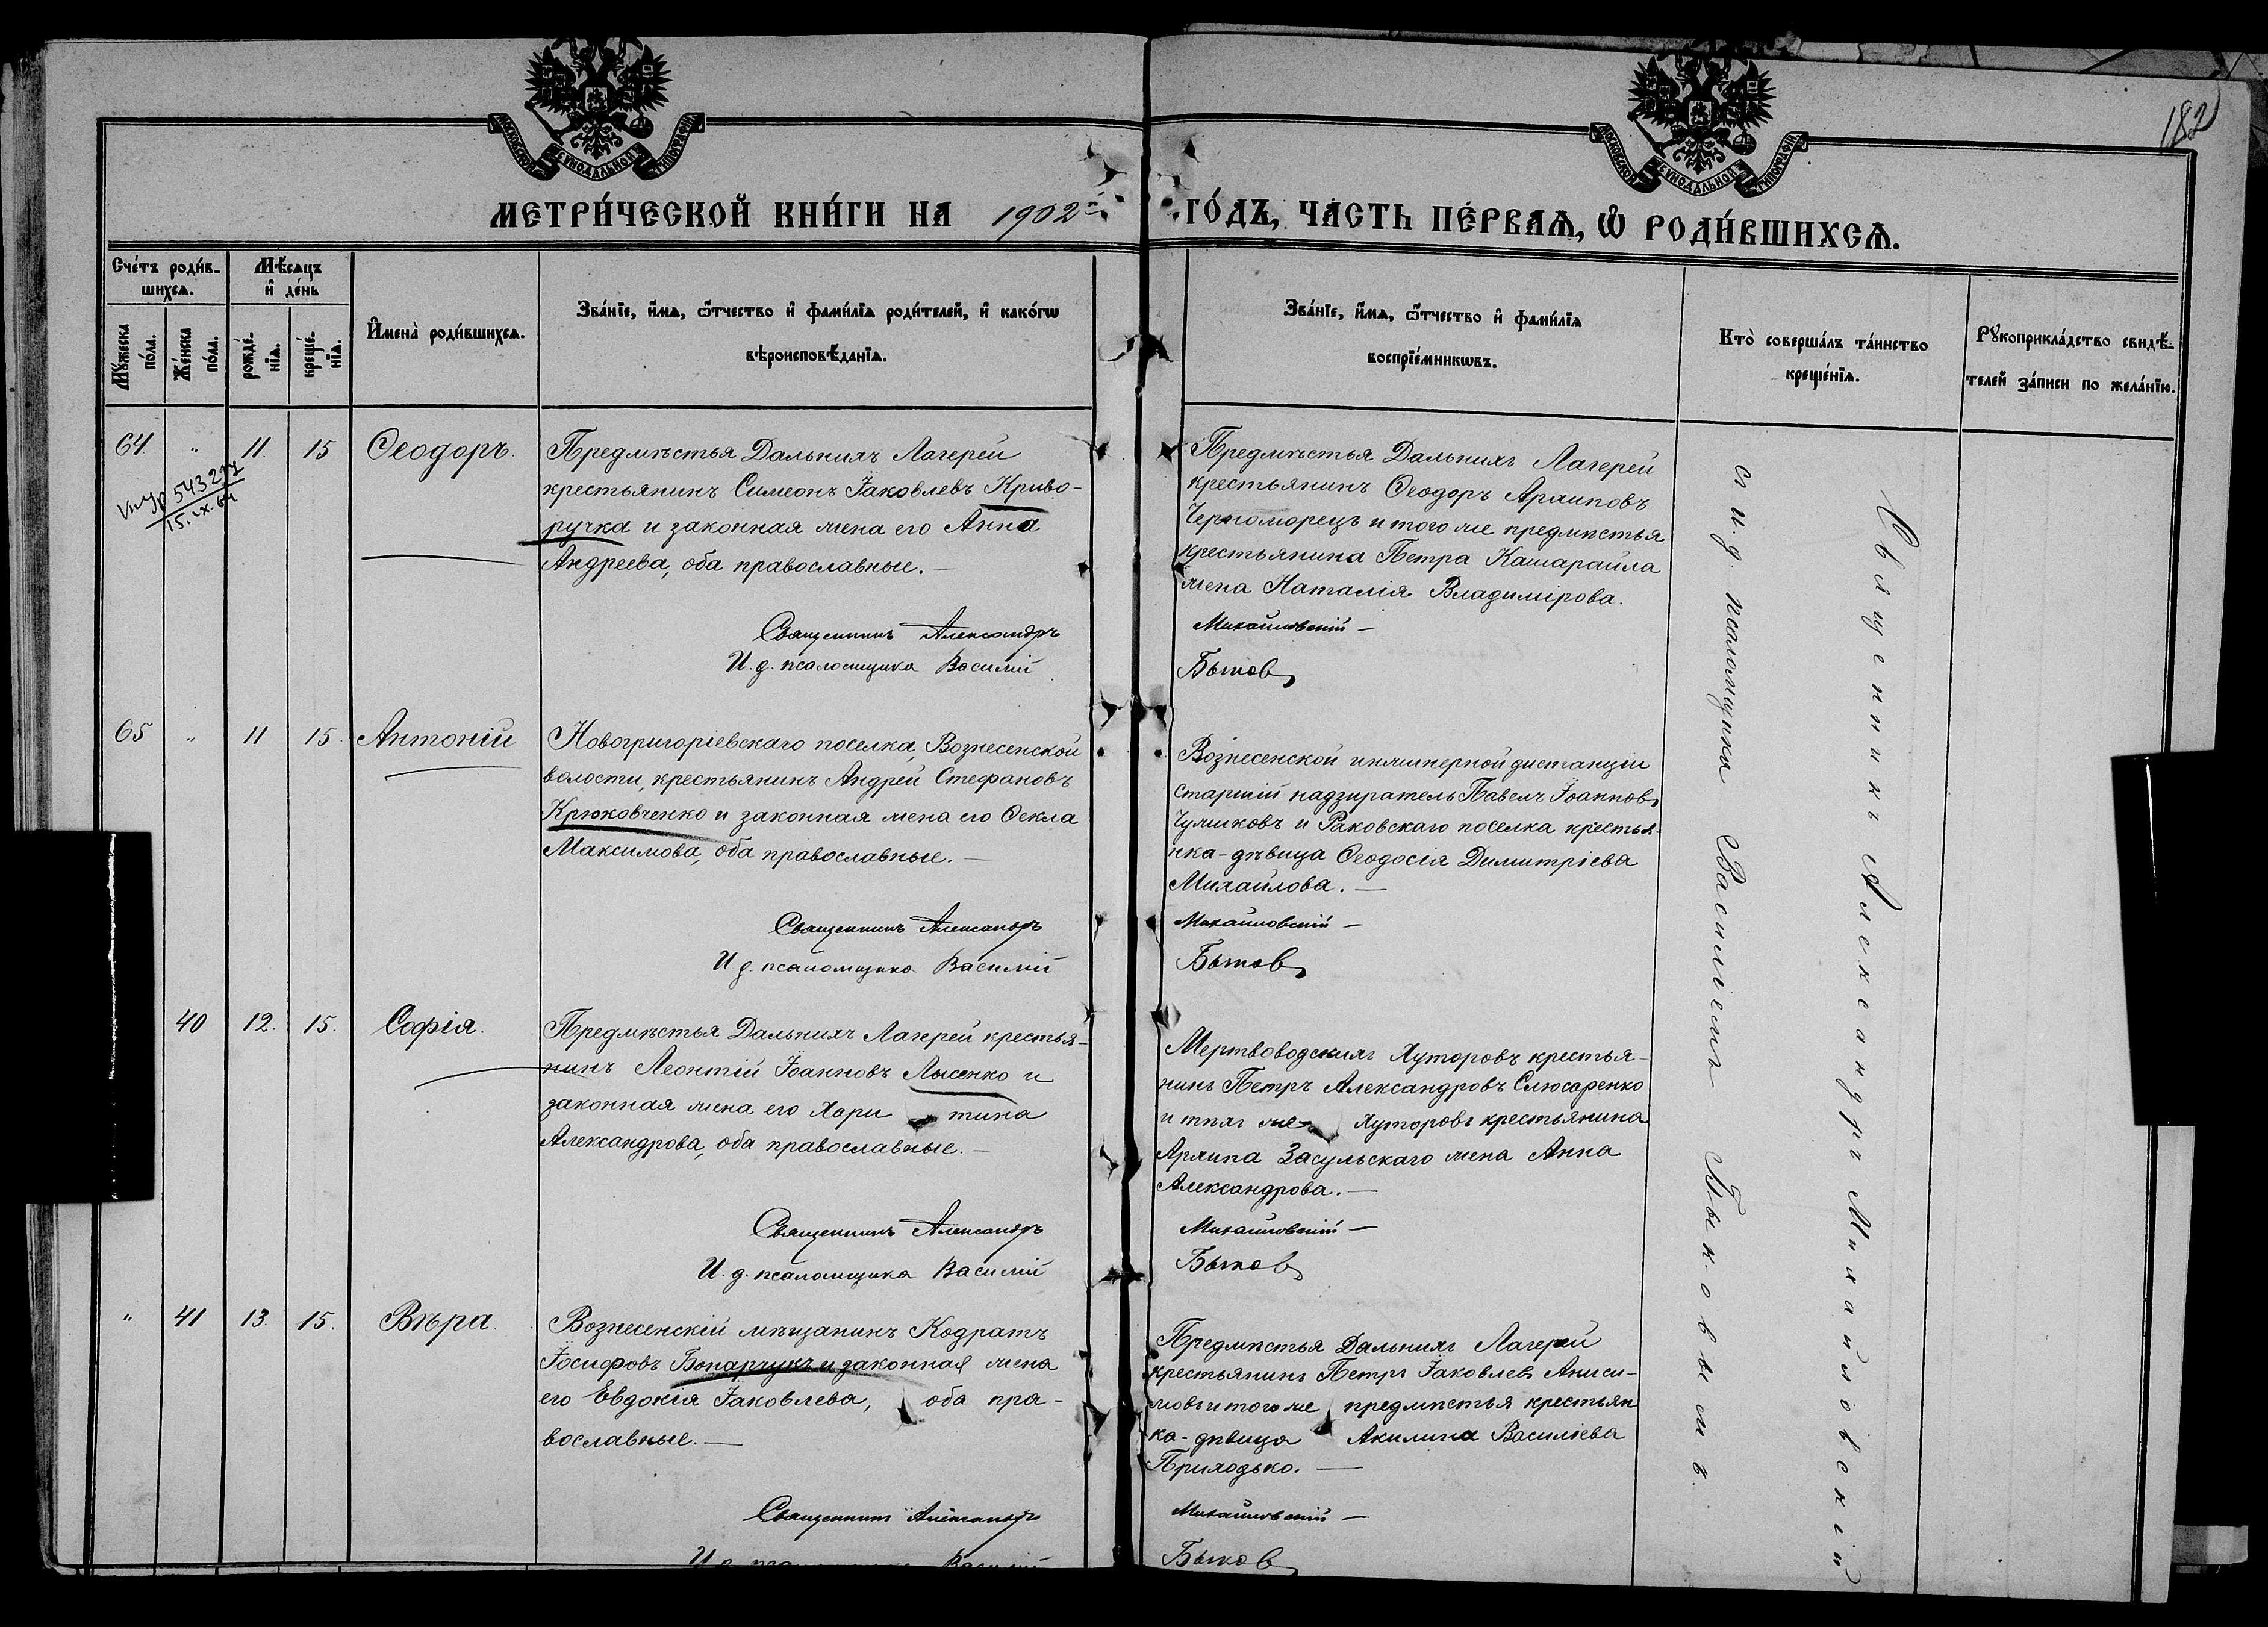 182
МОСКОВСКОЙ СѴНОДАЛЬНОЙ ТИПОГРАФІИ
МОСКОВСКОЙ СѴНОДАЛЬНОЙ ТИПОГРАФІИ
МЕТРИ́ЧЕСКОЙ КНИ́ГИ НА 1902 ГО́ДЪ, ЧА́СТЬ ПЕ́РВАѦ, Ѡ РОДИ́ВШИХСѦ.
Сче́тъ роди́в-
шихсѧ.
Мꙋ́жеска
по́ла.
Же́нска
по́ла.
Мѣ́сѧцъ
и҆ де́нь
рожде́-
нїѧ.
креще́-
нїѧ.
И҆мена̀ роди́вшихсѧ.
Зва́нїе, и҆́мѧ, ѻ҆́тчество и҆ фами́лїѧ роди́телей, и҆ како́гѡ
вѣроисповѣ́данїѧ.
Зва́нїе, и҆́мѧ, ѻ҆́тчество и҆ фами́лїѧ
воспрїе́мникѡвъ.
Кто̀ соверша́лъ та́инство
креще́нїѧ.
Рꙋкоприкла́дство свидѣ́-
телей за́писи по жела́нїю.
64 " 11. 15 Ѳеодоръ.
543227
15.IX.64
Предмѣстья Дальнихъ Лагерей
крестьянинъ Симеонъ Іаковлевъ Криво-
ручка и законная жена его Анна
Андреева, оба православные. —
Священникъ Александръ
И. д. псаломщика Василій
Предмѣстья Дальнихъ Лагерей
крестьянинъ Ѳеодоръ Архиповъ
Черноморецъ и того же предмѣстья
крестьянина Петра Кашараила
жена Наталія Владимірова.
Михайловскій —
Быковъ
65 " 11 15. Антоній
Новогригоріевскаго поселка, Вознесенской
волости, крестьянинъ Андрей Стефановъ
Крюковченко и законная жена его Ѳекла
Максимова, оба православные. —
Священникъ Александръ
И д. псаломщика Василій
Вознесенской инженерной дистанціи
старшій надзиратель Павелъ Іоанновъ
и Раковскаго поселка крестья-
нка-дѣвица Ѳеодосія Димитріева
Михайлова. —
Михайловскій —
Быковъ
40 12. 15. Софія.
Предмѣстья Дальнихъ Лагерей крестья-
нинъ Леонтій Іоанновъ Лысенко и
законная жена его Хари тина
Александрова, оба православные. —
Священникъ Александръ
И. д. псаломщика Василій
Мертвоводскихъ Хуторовъ крестья-
нинъ Петръ Александровъ Слюсаренко
и тѣхъ же Хуторовъ крестьянина
Архипа Засульскаго жена Анна
Александрова. —
Михайловскій —
Быковъ
" 41 13. 15. Вѣра.
Вознесенскій мѣщанинъ Кодратъ
Іосифовъ Бонарчукъ и законная жена
его Евдокія Іаковлева, оба пра-
вославные. —
Священникъ Александръ
И д. псаломщика Василій
Предмѣстья Дальнихъ Лагерей
крестьянинъ Петръ Іаковлевъ Аниси-
мовъ и того же предмѣстья крестьян
ка-дѣвица Акилина Василіева
Приходько. —
Михайловскій —
Быковъ
Священникъ Александръ Михайловскій
съ и. д. псаломщика Василіемъ Быковымъ.